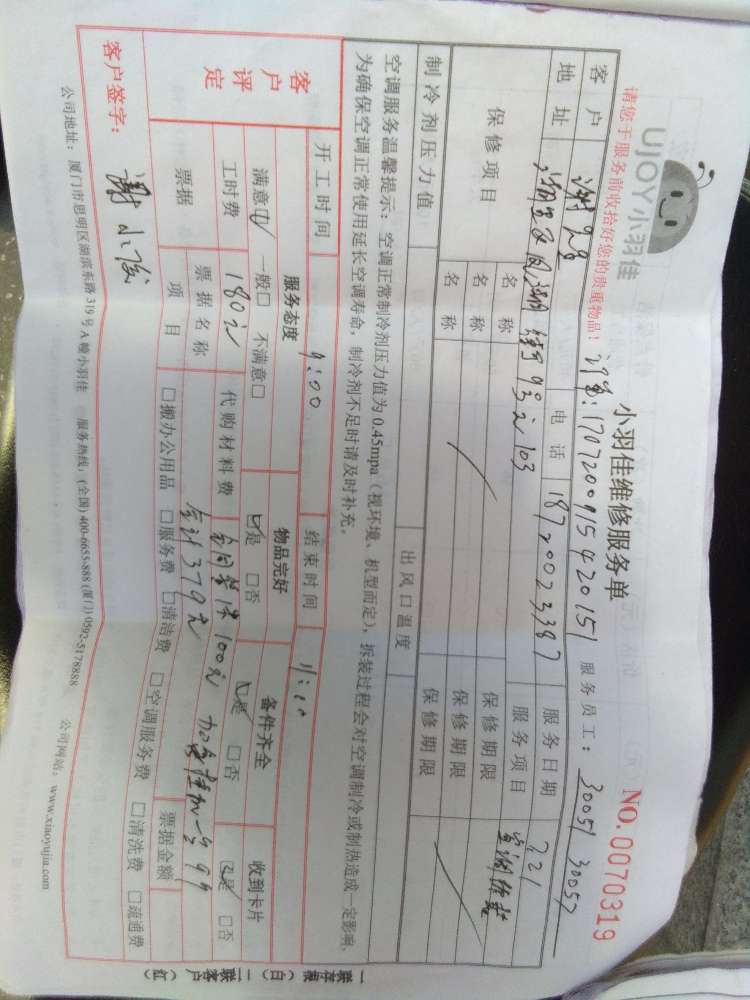 UJOY小羽佳
小羽佳维修服务单
NO.0070319
请您于服务前收拾好您的贵重物品!
1707200915420151
服务员工: 30051 30057
客户
电话 18720023387
服务日期 7.21
地址
服务项目
保修项目
名称
保修期限
名称
保修期限
名称
保修期限
制冷剂压力值
出风口温度
空调服务温馨提示:空调正常制冷剂压力值为0.45mpa(视环境、机型而定),拆装过程会对空调制冷或制热造成一定影响,
为确保空调正常使用延长空调寿命,制冷剂不足时请及时补充。
开工时间 9:00 结束时间 11:10
客户评定
服务态度 物品完好 备件齐全 收到卡片
满意☑ 一般□ 不满意□ ☑是 □否 ☑是 □否 ☑是 □否
工时费 180元 代购材料费
合计379元
票据
票据名称
票据金额
项目 □搬办公用品 □服务费 □清洁费 □空调服务费 □清洗费 □疏通费
客户签字:
公司地址:厦门市思明区湖滨东路319号A幢小羽佳 服务热线:(全国)400-6655-888 (厦门)0592-5178888 公司网站:www.xiaoyujia.com
一联存根(白) 二联客户(红)